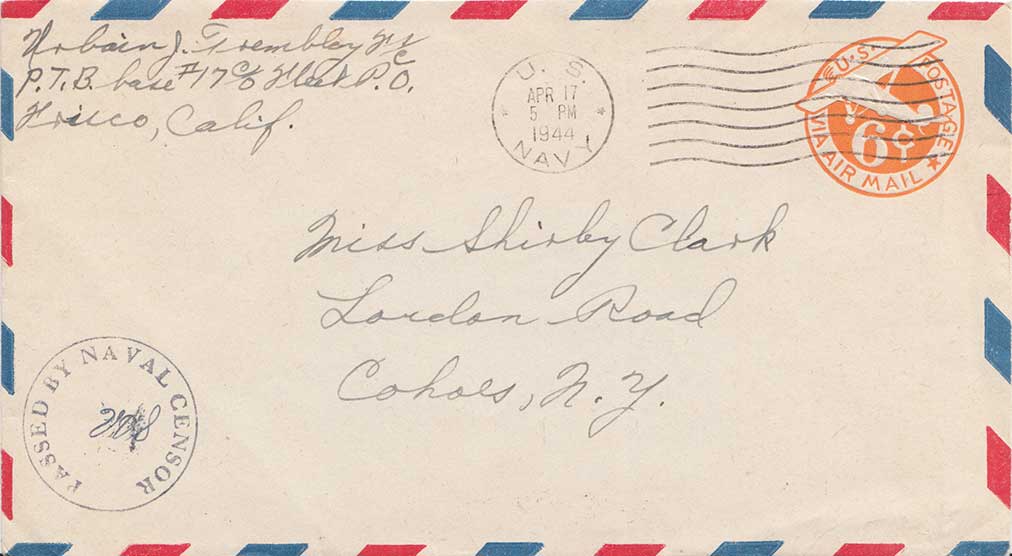 Urbain J. Trembley
P.T.B. base #17 c/o Fleet P.O.
Frisco, Calif.
U. S.
APR 17
5 PM
1944
NAVY
U.S. POSTAGE
6¢
VIA AIR MAIL
Miss Shirley Clark
Lordon Road
Cohoes, N.Y.
PASSED BY NAVAL CENSOR